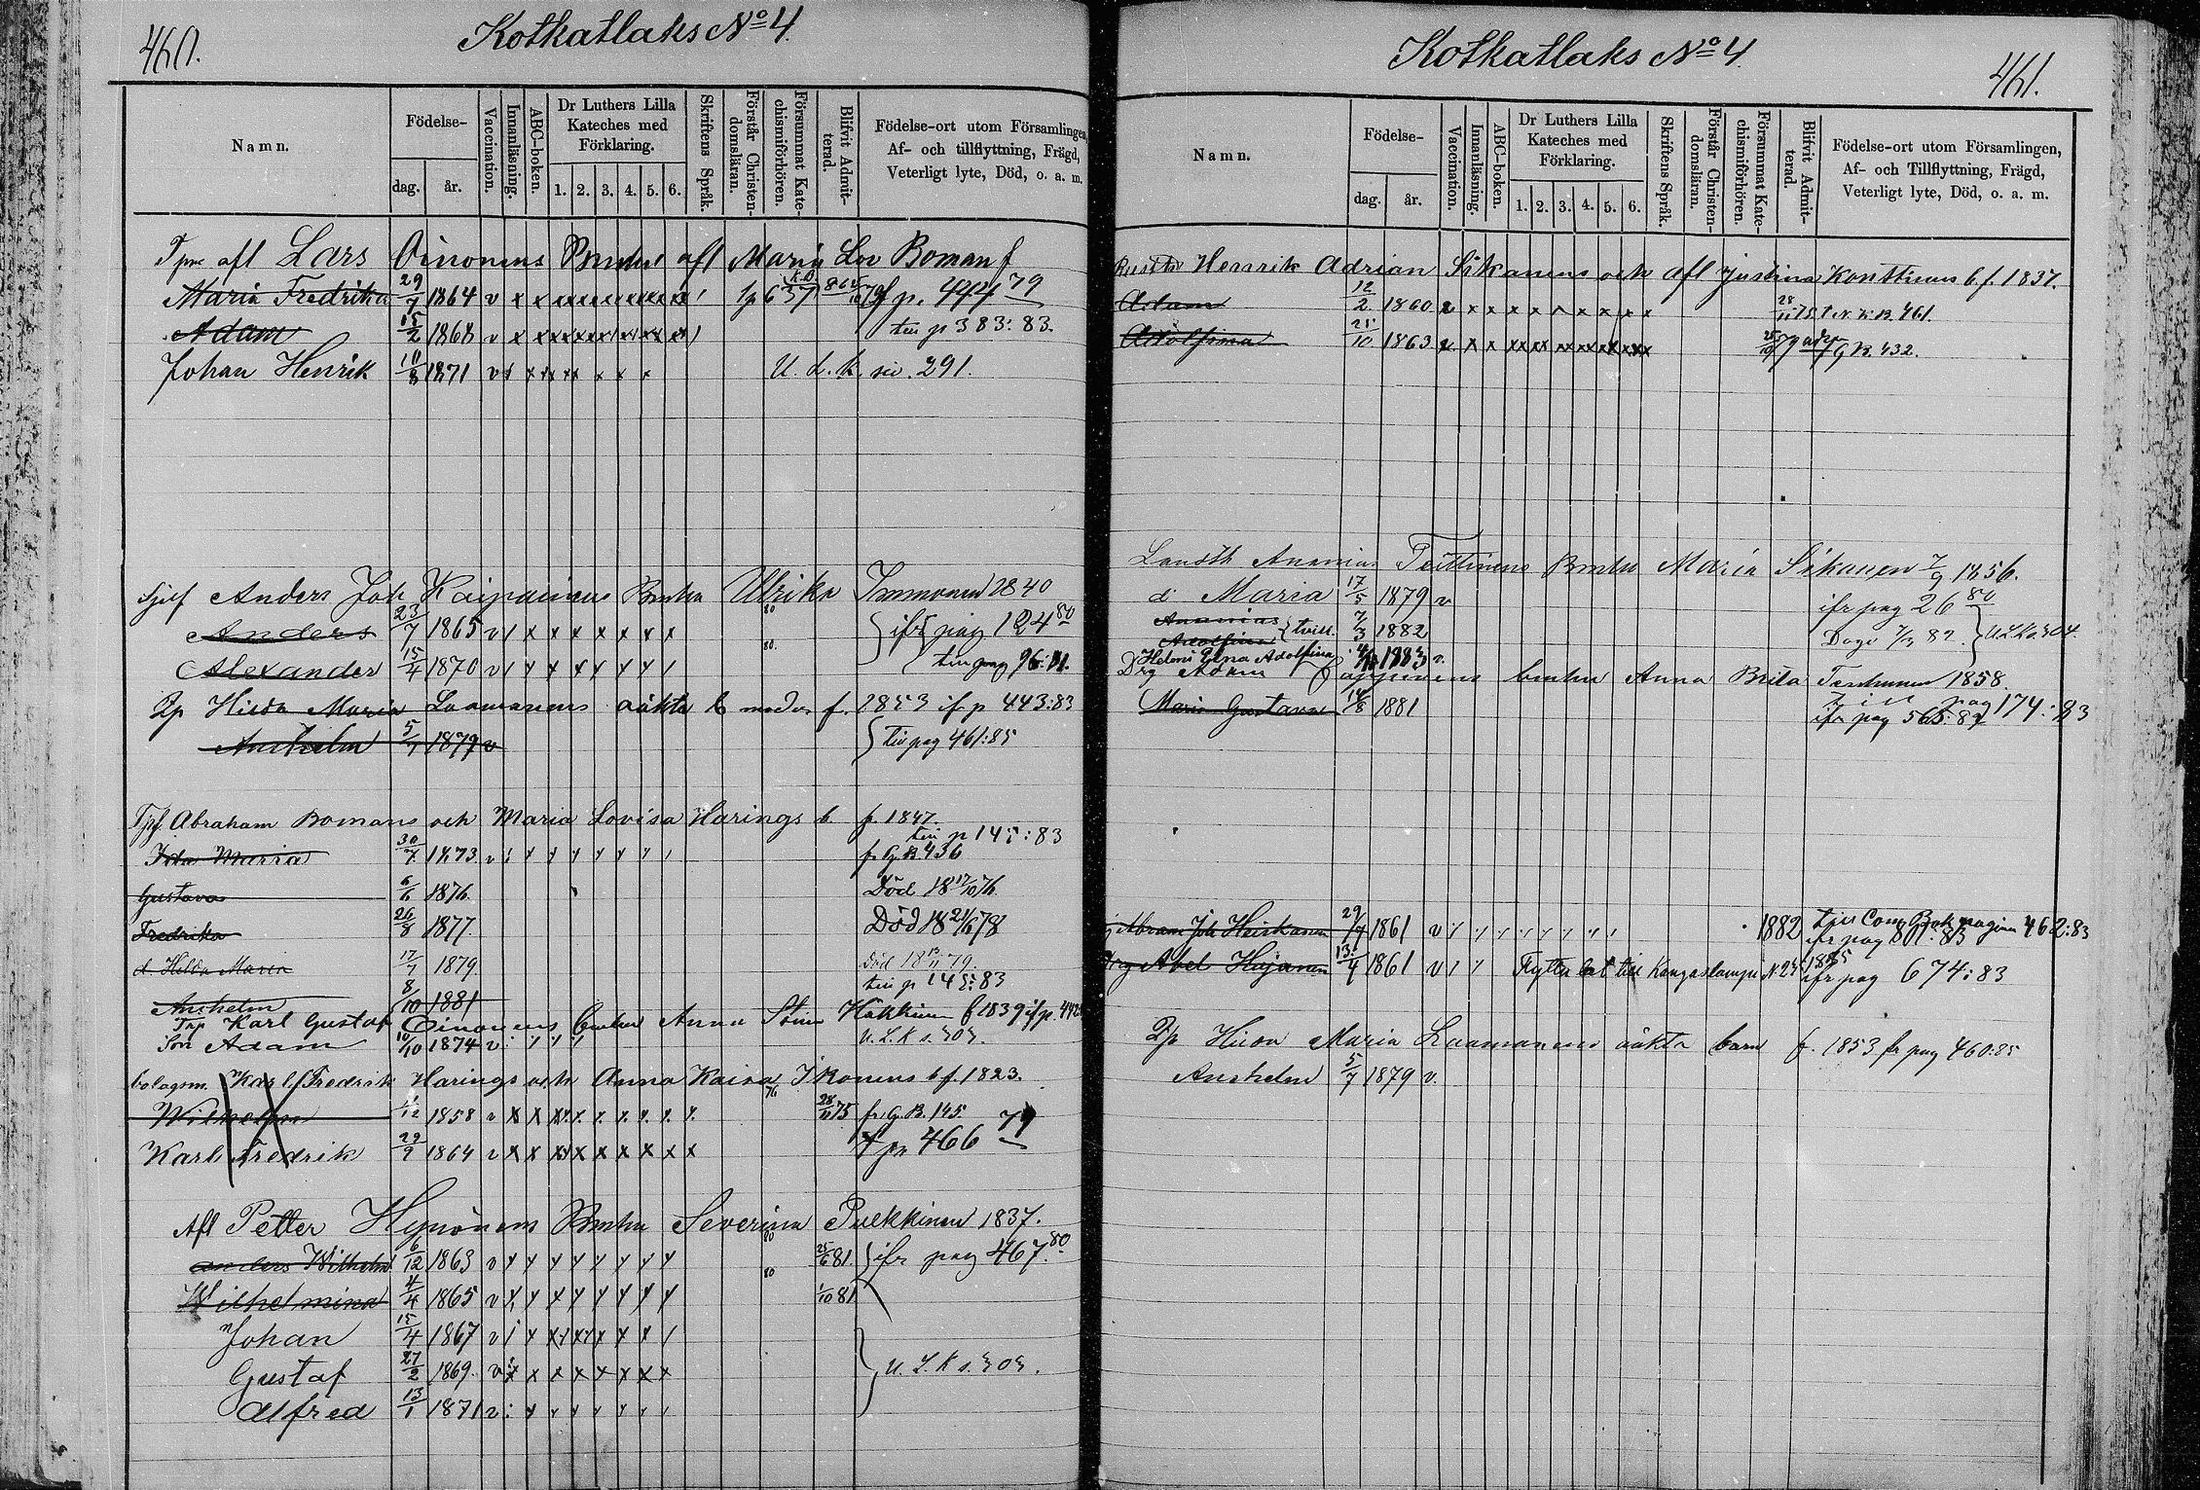 460.
Kotkatlaks No 4.
Namn.
Födelse-
dag.
år.
Vaccination.
Innanläsning.
ABC-boken.
Dr Luthers Lilla
Kateches med
Förklaring.
1. 2. 3. 4. 5. 6.
Skriftens Språk.
Förstår Christen-
domsläran.
Försummat Kate-
chismiförhören.
Blifvit Admit-
terad.
Födelse-ort utom Församlingen,
Af- och tillflyttning, Frägd,
Veterligt lyte, Död, o. a. m.
afl Lars Oinonens afl Maria Lov Boman f
Maria Fredrika 29/7 1864 v
Adam 15/2 1868 v till p 383:83.
Johan Henrik 10/8 1871 v U. L. K. 291.
Anders Joh Kaipainens Ulrika Immonen 1840
Anders 23/7 1865 v 80 ifr pag 124 80
Alexander 15/4 1870 v 80. till pag 96:81.
Hilda Maria Laamanens oäkta b f. 1853 if p 443:83
Anshelm 5/7 1879 v till pag 461:85
Abraham Bomans och Maria Lovisa Harings b. f. 1847.
till p 145:83
Ida Maria 30/7 1873 v fr G.B. 436
Gustava 6/6 1876 Död 18 17/10 76.
Fredrika 26/8 1877 Död 18 21/6 78
d. Hilda Maria 17/7 1879 Död 18 79.
Anshelm 8/10 1881 till p 145:83
Karl Gustaf Oinonens Anna Hakkinen f 1839
Son Adam 10/10 1874 v U. L. K s. 303.
bolagsm. Karl Fredrik Harings och Anna Kaisa Ikonens b f. 1823.
Wilhelm /12 1858 v 76 28/11 75 fr. G. B. 145.
Karl Fredrik 29/9 1864 v 466 79
Afl Petter Hynönens Severina Pulkkinen 1837.
Anders Wilhelm 6/12 1863 v 80 25/6 81. ifr pag 467. 80
Wilhelmina 4/4 1865 v 80 1/10 81
Johan 15/4 1867 v
Gustaf 27/2 1869. v U. L. K s. 303.
Alfred 13/1 1871 v
461.
Kotkatlaks No 4.
Namn.
Födelse-
dag.
år.
Vaccination.
Innanläsning.
ABC-boken.
Dr Luthers Lilla
Kateches med
Förklaring.
1. 2. 3. 4. 5. 6.
Skriftens Språk.
Förstår Christen-
domsläran.
Försummat Kate-
chismiförhören.
Blifvit Admit-
terad.
Födelse-ort utom Församlingen,
Af- och Tillflyttning, Frägd,
Veterligt lyte, Död, o. a. m.
Henrik Adrian Sikanens och afl Justina Konttinens b. f. 1837.
Adam 12/2 1860. v 28/11 75 461.
Adolfina 21/10 1863 v 25/10 79 G B. 432.
Landth Ananias Teittinens Maria Sikanen 7/9 1856.
d. Maria 17/5 1879 v ifr pag 26 80
Ananias 7/3 1882
Adolfina tvill. Dogo 82.
Helmi Elina Adolfina 1883 v.
Drg Adam Anna Brita Taskinen 1858
Maria Gustava 14/8 1881 till pag 174:83
ifr pag 565:82
Abram Joh Heiskanen 29/7 1861 v 1882 till Com. Bok pagina 462:83
ifr pag 801:83
Drg Abel Hujanen 13/4 1861 v Flytta bet till Kangaslampi N 24 1885
ifr pag 674:83
Hilda Maria Laamanens oäkta barn f. 1853 fr pag 460:85
Anshelm 5/7 1879 v.